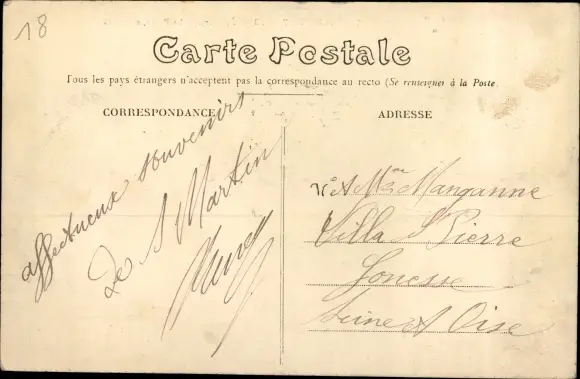 18
Carte Postale
Tous les pays étrangers n'acceptent pas la correspondance au recto (Se renseigner à la Poste
CORRESPONDANCE
affectueux souvenirs
De S Martin
ADRESSE
Mme Manganne
Villa St Pierre
Gonesse
Seine et Oise